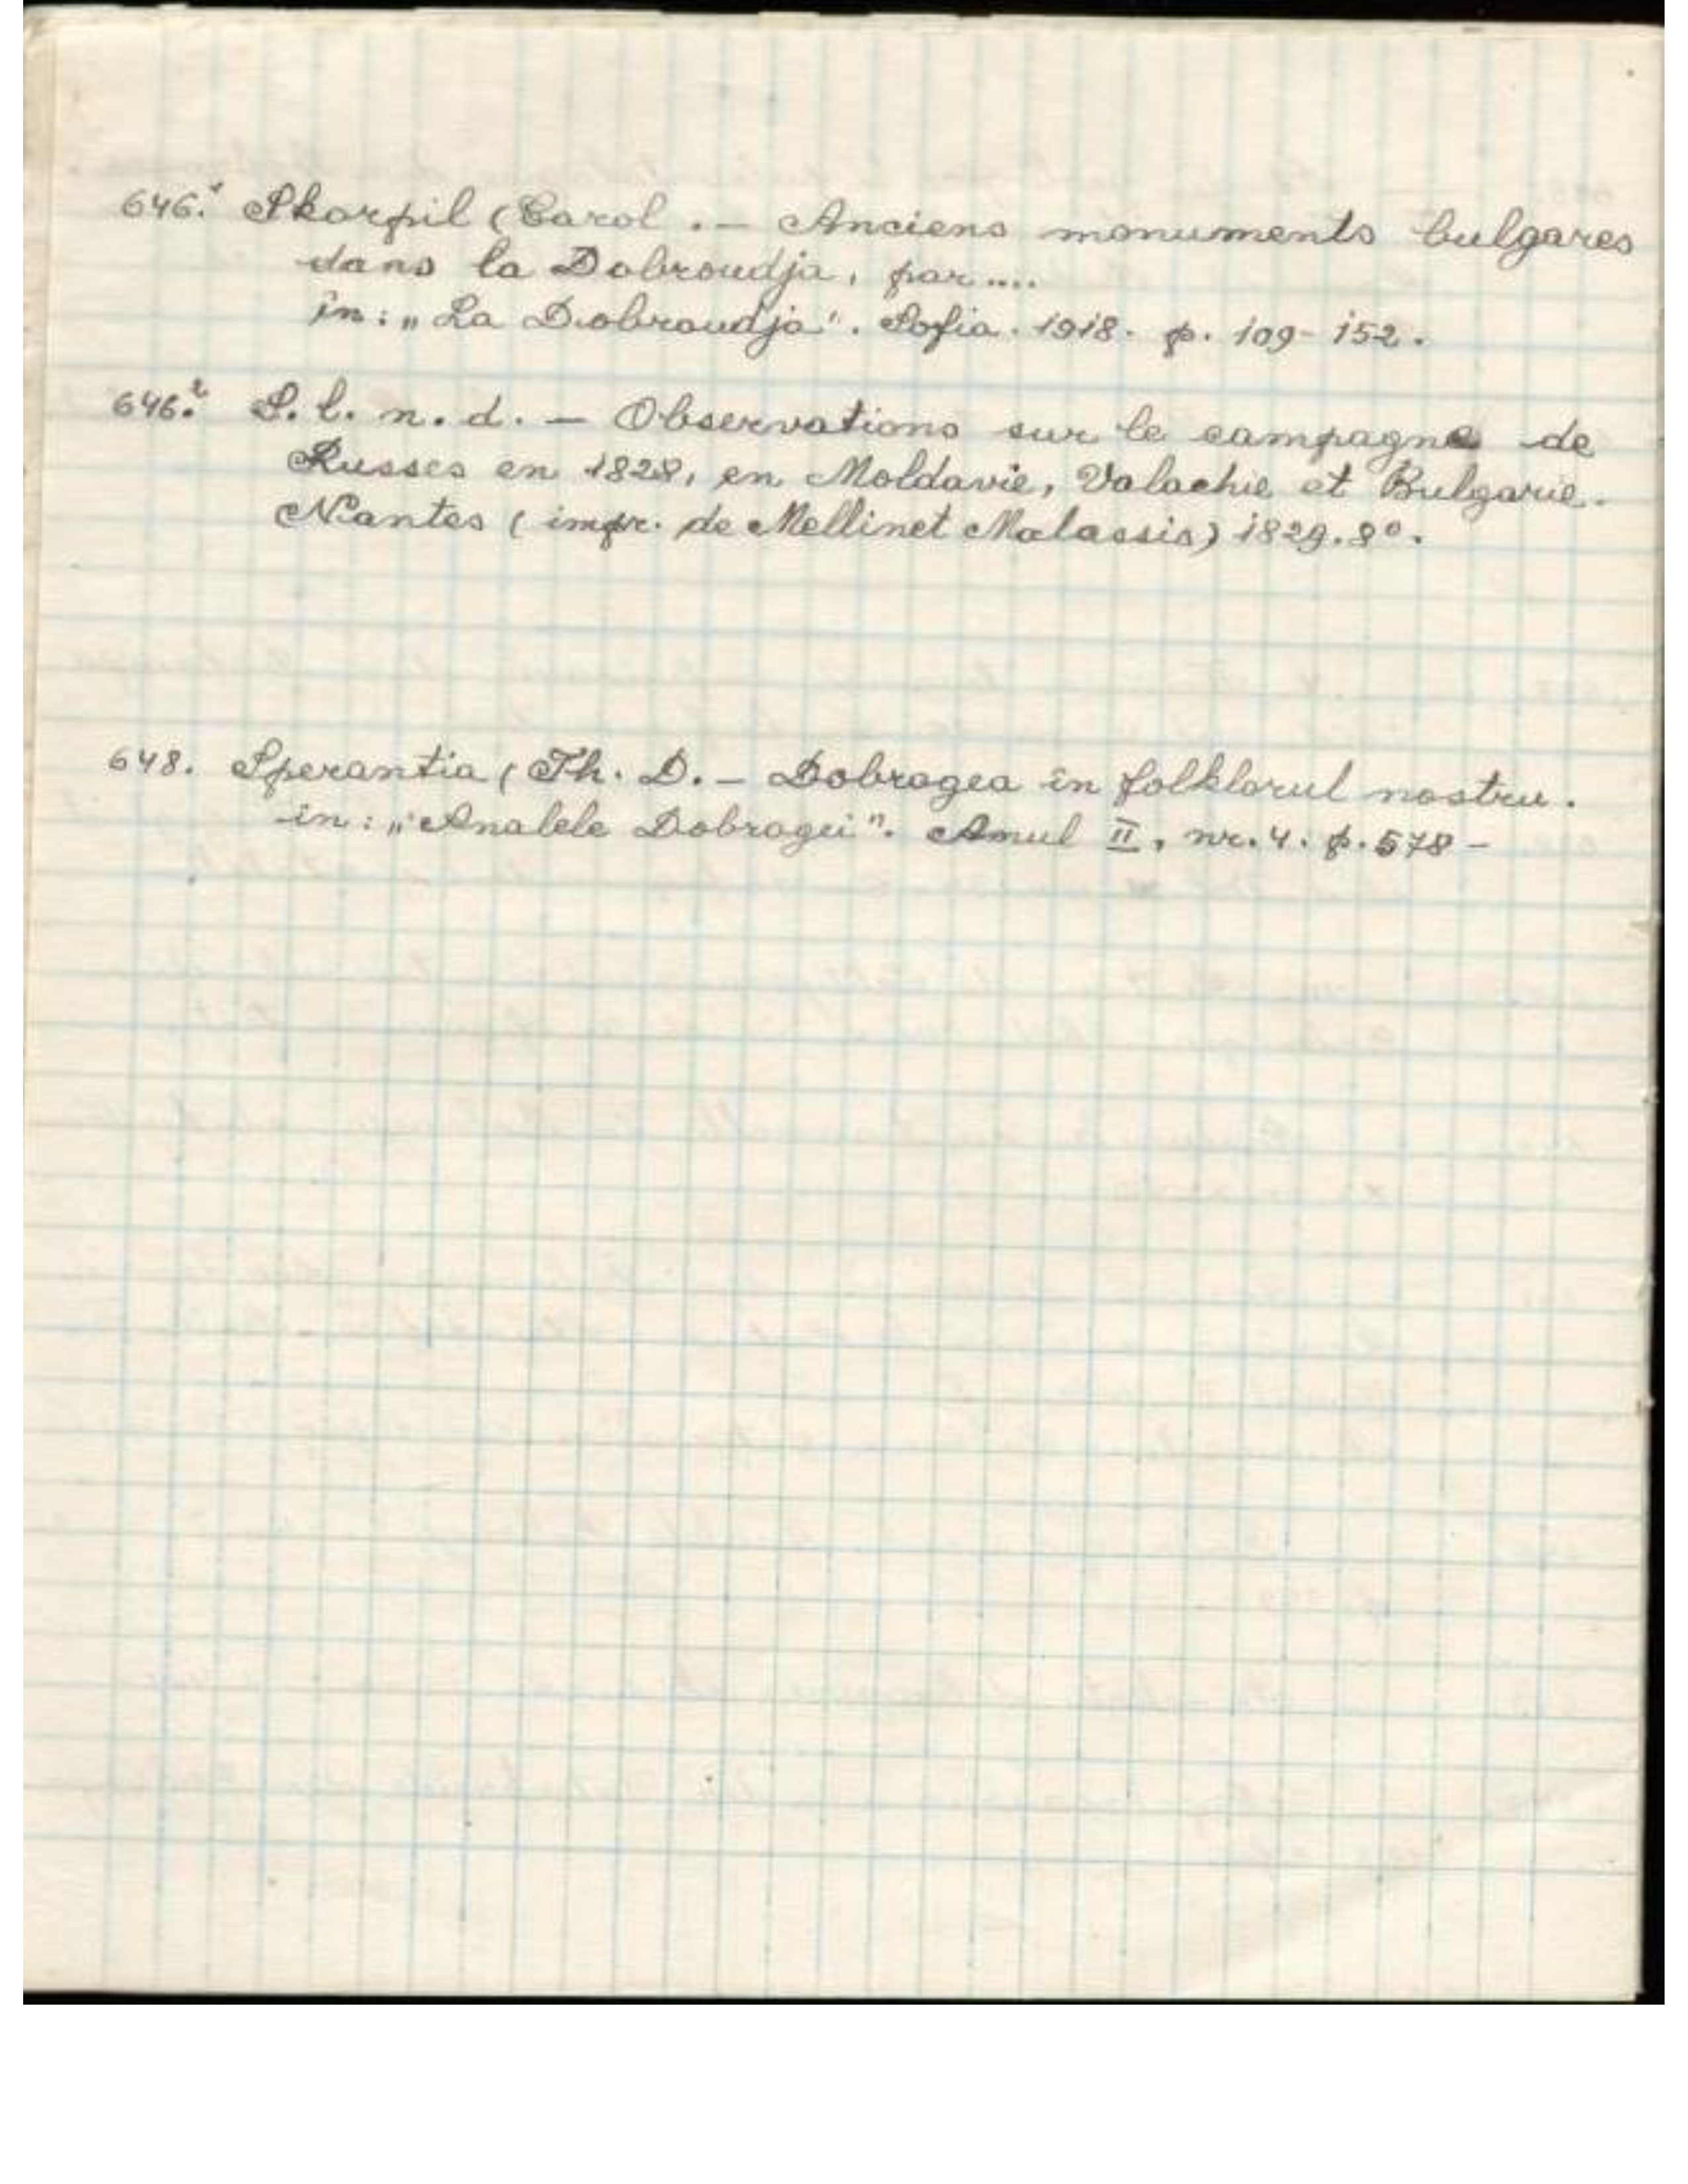 646.¹ Skorpil (Carol . — Anciens monuments bulgares
dans la Dobroudja, par ....
in: „La Dobroudja". Sofia. 1918. p. 109-152.
646.² S. l. n. d. — Observations sur le campagne de
Russes en 1828, en Moldavie, Valachie et Bulgarie.
Nantes (impr. de Mellinet Malassis) 1829. 8º.
648. Sperantia (Th. D. — Dobrogea în folklorul nostru.
in: „Analele Dobrogei". Anul II, nr. 4. p. 578 —